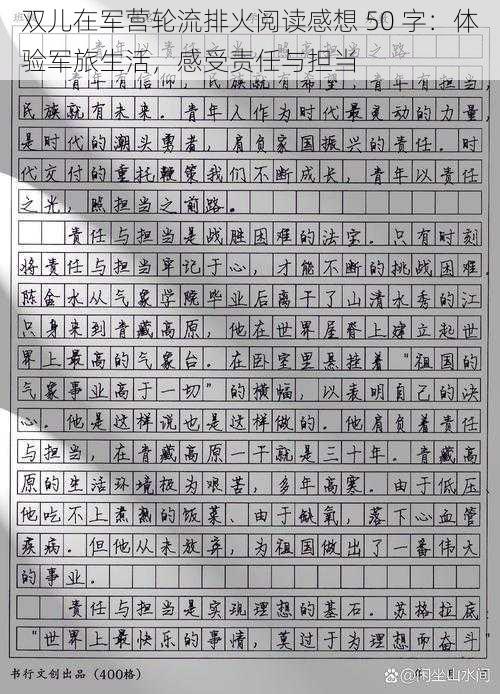 双儿在军营轮流排火阅读感想 50 字：体
验军旅生活，感受责任与担当
青年有信仰，民族就有希望，青年有担当，
民族就有未来。青年人作为时代最灵动的力量，
是时代的潮头勇者，肩负家国振兴的责任。时
代交付的重托鞭策我们不断成长，青年以责任
之光，照担当之前路。
责任与担当是战胜困难的法宝。只有时刻
将责任与担当牢记于心，才能不断的挑战困难。
陈金水从气象学院毕业后离开了山清水秀的江
只身来到青藏高原，他在世界屋脊上建立起世
界上最高的气象台。在卧室里悬挂着“祖国的
气象事业高于一切”的横幅，以表明自己的决
心。他是这样说也是这样做的。他肩负着责任
与担当，在青藏高原一干就是三十年。青藏高
原的生活环境极为艰苦，多年高寒。由于低压
他吃不上煮熟的饭菜、由于缺氧，落下心血管
疾病。但他从未放弃，为祖国做出了一番伟大
的事业。
责任与担当是实现理想的基石。苏格拉底
“世界上最快乐的事情，莫过于为理想而奋斗”
书行文创出品（400格）
年 月
@闲坐山水间